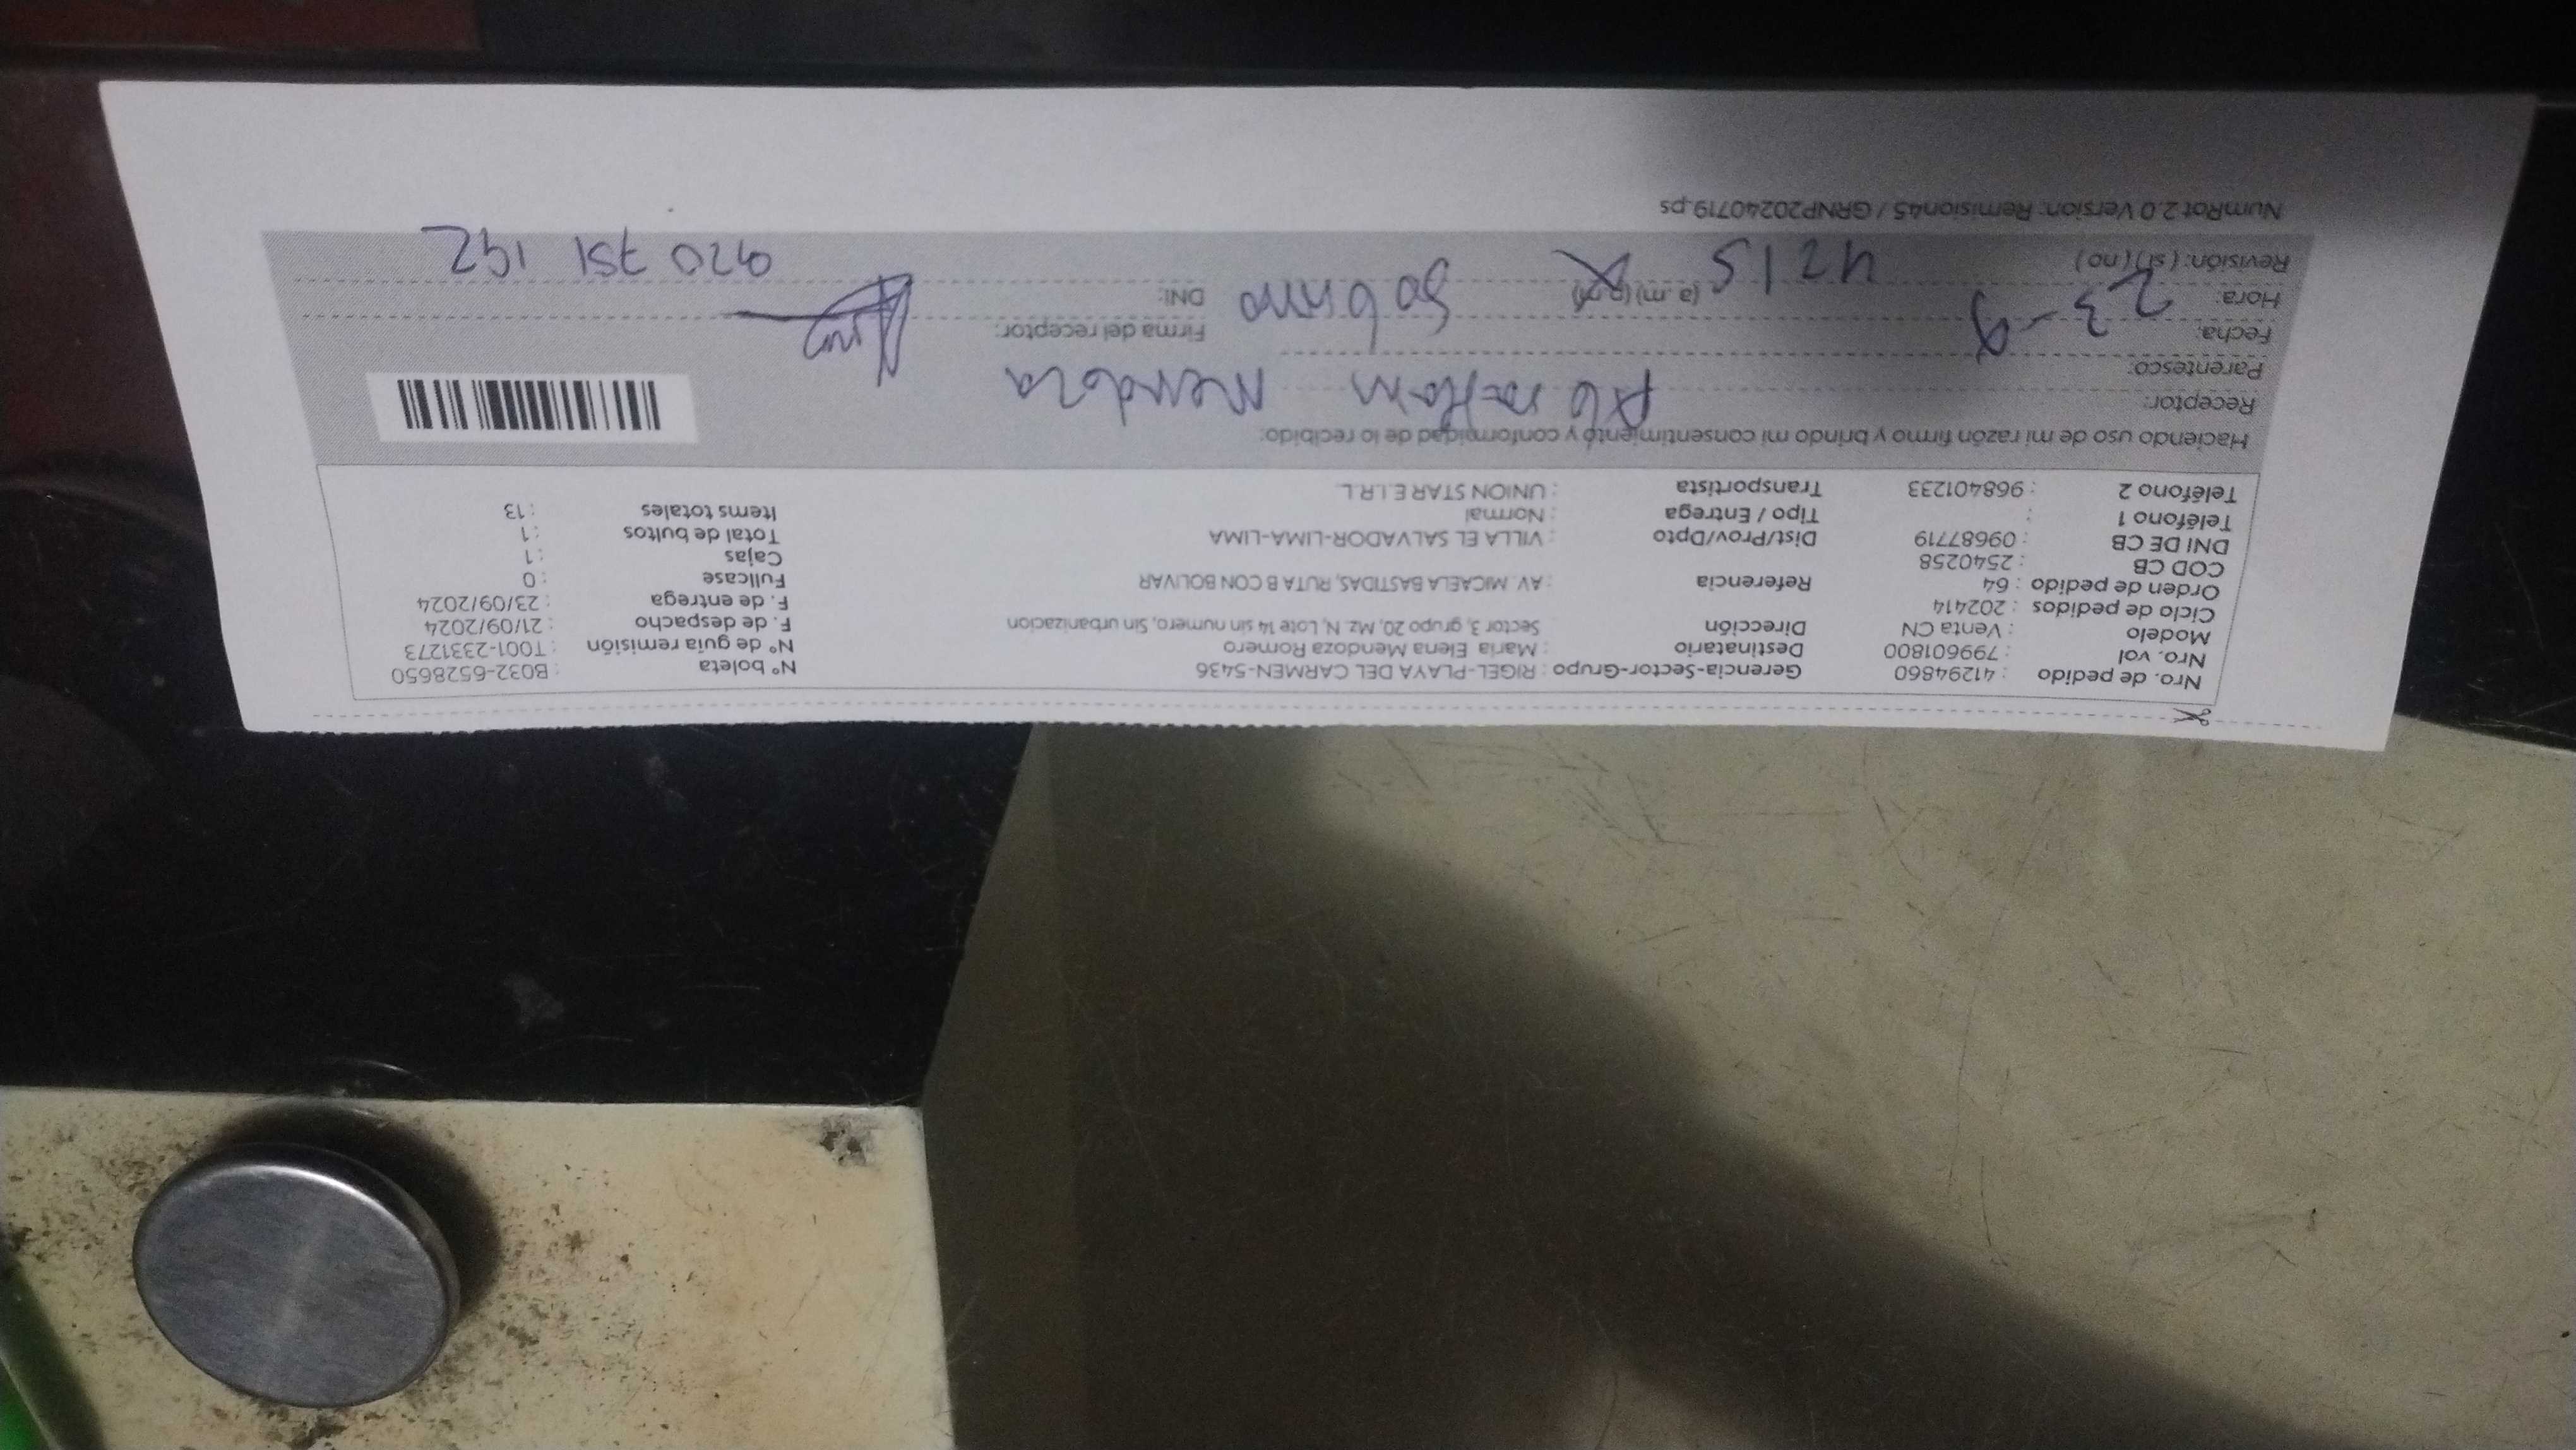 Nro. de pedido : 41294860 Gerencia-Sector-Grupo : RIGEL-PLAYA DEL CARMEN-5436 N° boleta : B032-6528650
Nro. vol : 799601800 Destinatario : Maria Elena Mendoza Romero N° de guía remisión : T001-2331273
Modelo : Venta CN Dirección : Sector 3, grupo 20, Mz. N, Lote 14 sin numero, Sin urbanizacion F. de despacho : 21/09/2024
Ciclo de pedidos : 202414 F. de entrega : 23/09/2024
Orden de pedido : 64 Referencia : AV. MICAELA BASTIDAS, RUTA B CON BOLIVAR Fullcase : 0
COD CB : 2540258 Cajas : 1
DNI DE CB : 09687719 Dist/Prov/Dpto : VILLA EL SALVADOR-LIMA-LIMA Total de bultos : 1
Teléfono 1 : Tipo / Entrega : Normal Items totales : 13
Teléfono 2 : 968401233 Transportista : UNION STAR E.I.R.L.
Haciendo uso de mi razón firmo y brindo mi consentimiento y conformidad de lo recibido:
Receptor: Mendoza
Parentesco:
Fecha: 23-9 Sobrino Firma del receptor:
Hora: 4215 (a.m) (p.m) DNI: 920 751 192
Revisión: (si) (no)
NumRot 2.0 Version: Remision45 / GRNP20240719.ps